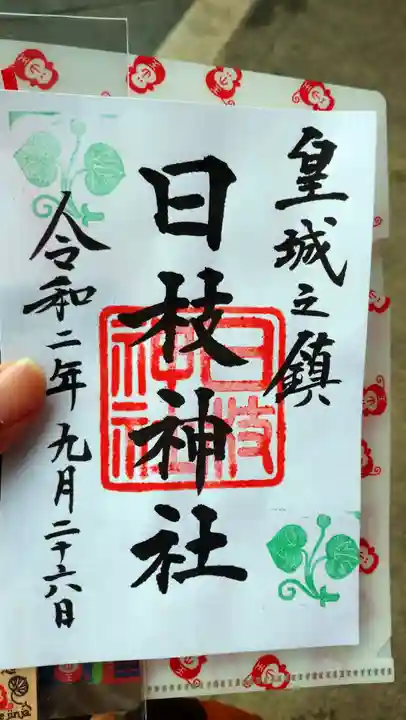 皇城之鎮
日枝神社
日枝神社
令和二年九月二十六日
jinja